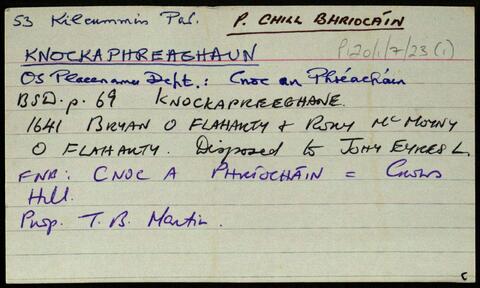 53 Kilcummin Par. P. CHILL BHRIOCÁIN
P120/1/7/23 (1)
KNOCKAPHREAGHAUN
OS Placenames Dept.: Cnoc an Phréacháin
BSD. p. 69 KNOCKAPREEGHANE.
1641 BRYAN O FLAHARTY & RORY Mc MOYNY
O FLAHARTY. Disposed to JOHN EYRES L.
FNB: CNOC A PHRÍOCHÁIN = Crows
Hill.
Prop. T. B. Martin.